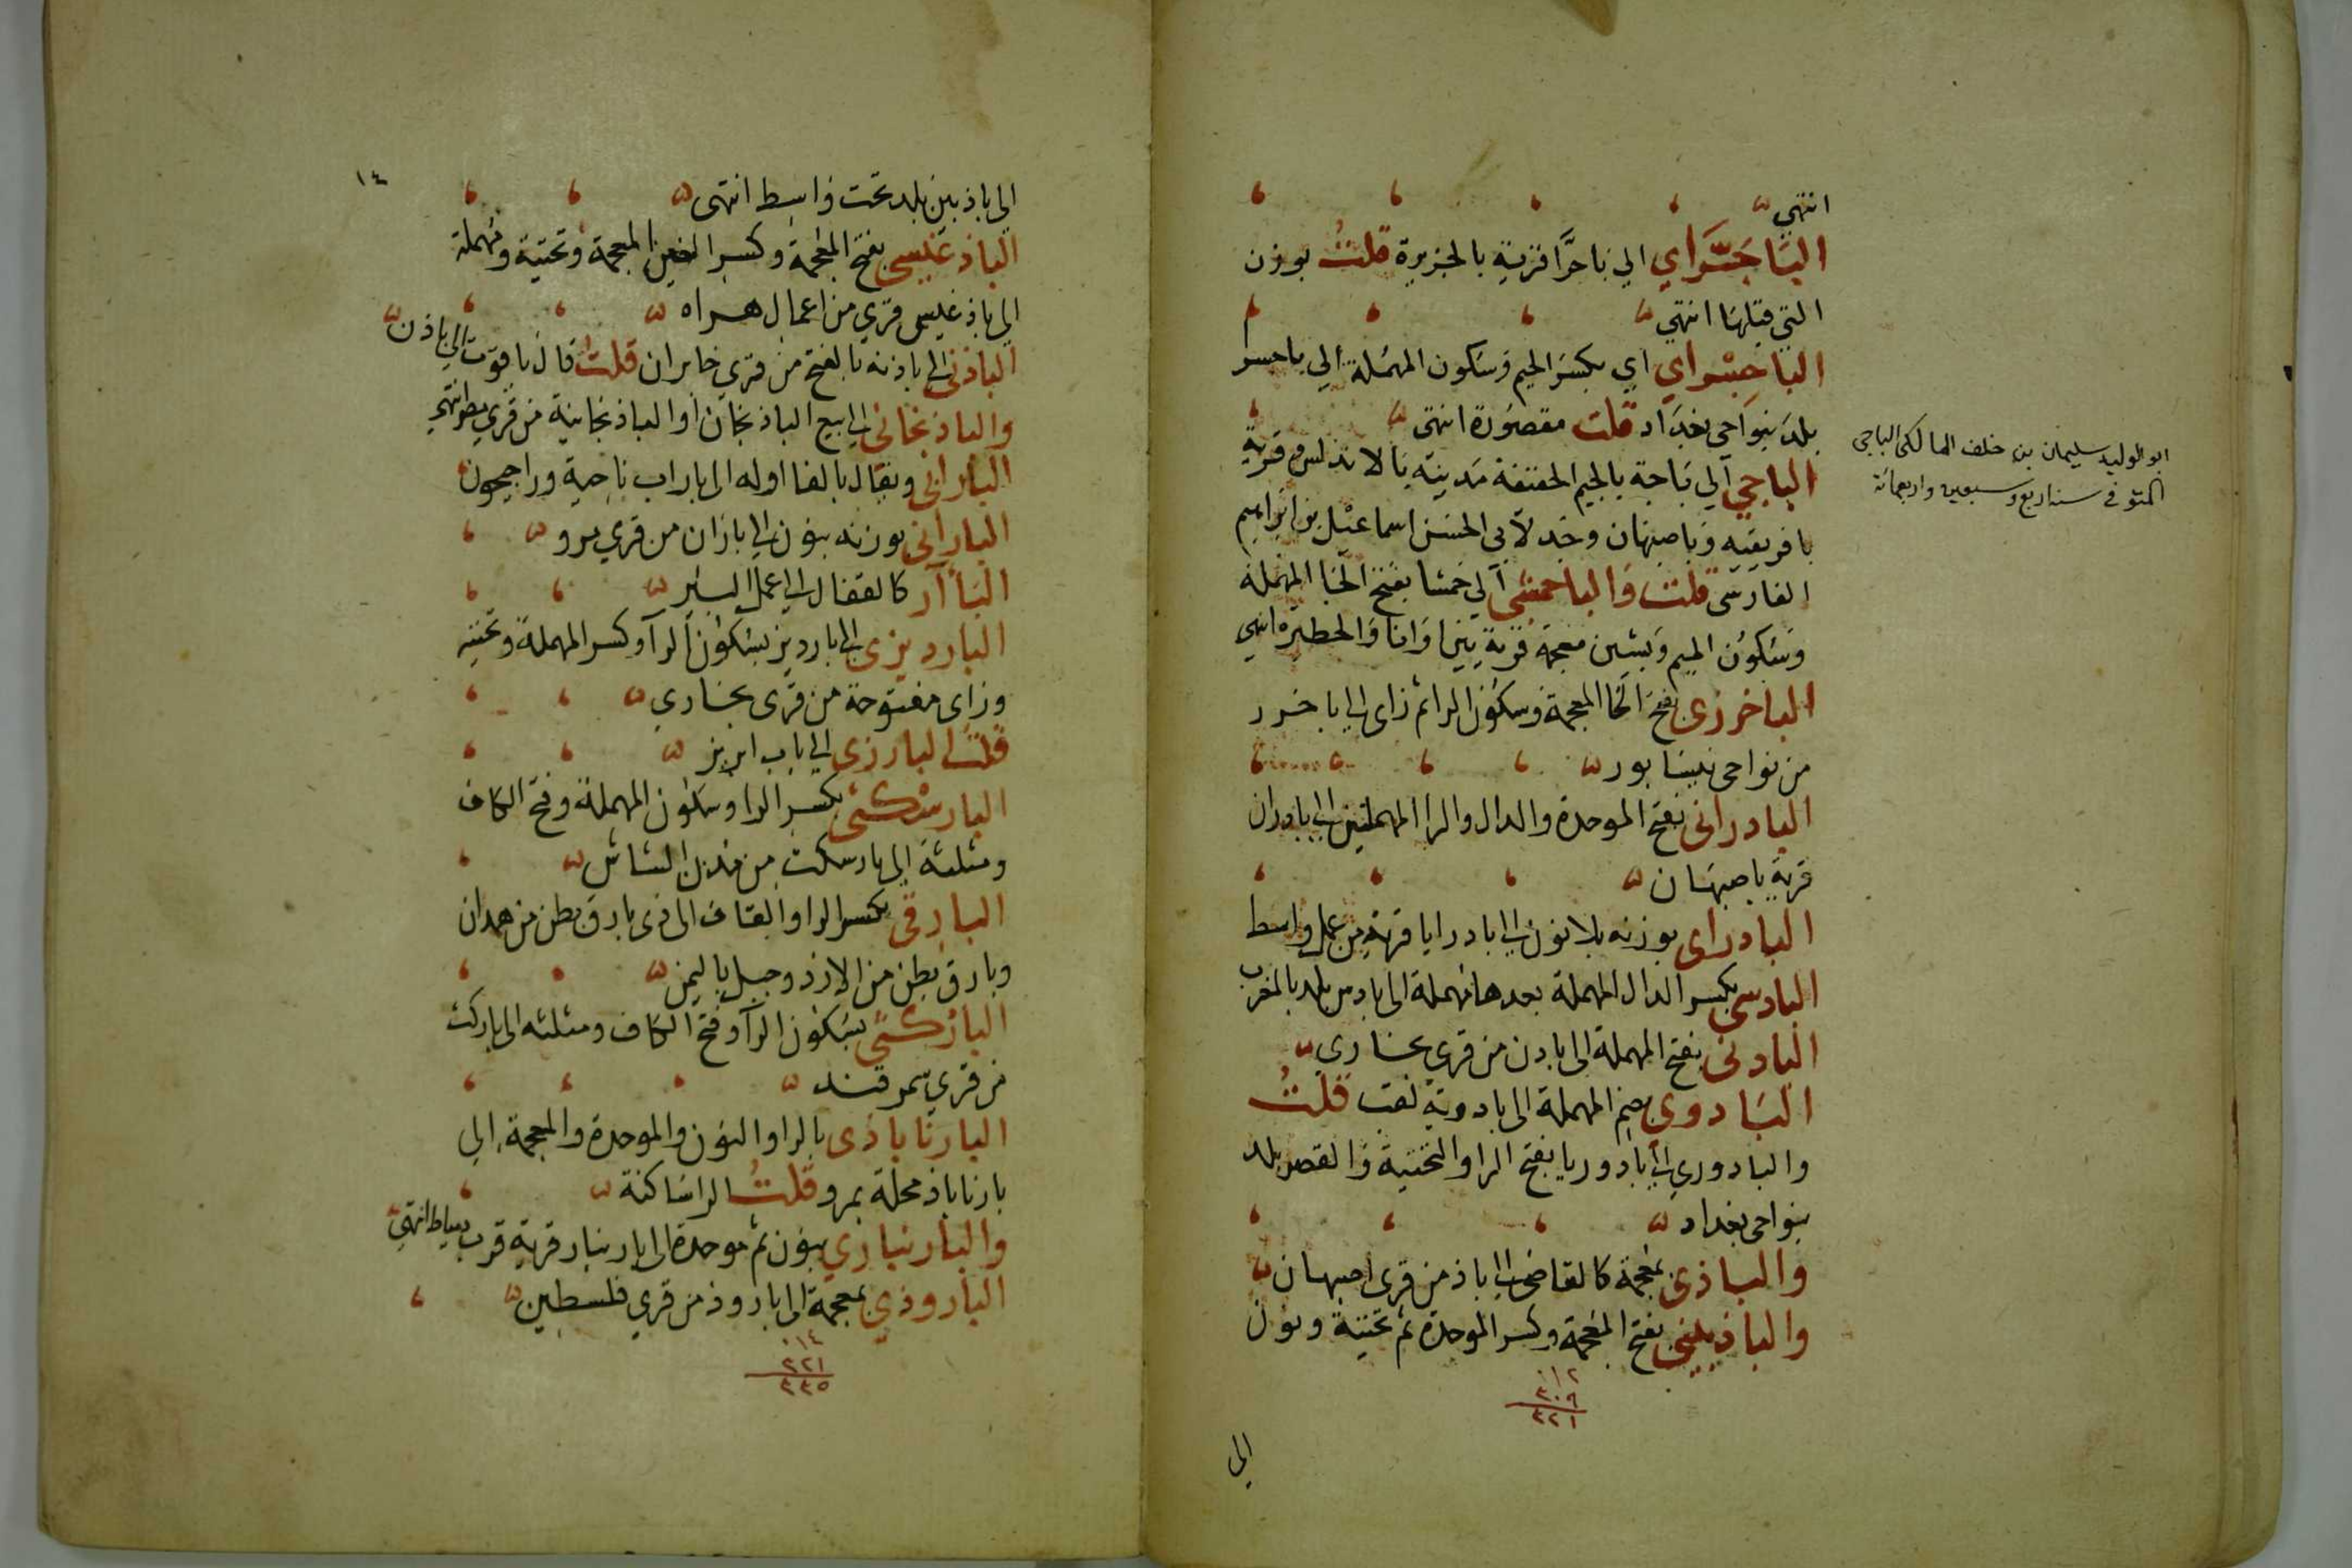 انتهى
البَاجَدَّاي الي باجدَّا قرية بالجزيرة قلتُ بوزن
التي قبلها انتهي
الباجِسْراي اي بكسر الجيم وسكون المهملة الي باجسرا
بلد بنواحي بغداد قلت مقصورة انتهى
الباجي الي باجة بالجيم المخففة مدينة بالاندلس وقرية
بافريقيه وباصبهان وجد لابي الحسن اسماعيل بن ابراهيم
الفارسى قلت والباحمشى الي حمشا بفتح الحا المهملة
وسكون الميم وبشين معجمة قرية بين اوانا والحظيره انتهي
الباخرزى بفتح الخا المعجمة وسكون الرا ثم زاى الى باخرز
من نواحى نيسابور
البادرانى بفتح الموحدة والدال والرا المهملتين الى بادران
قرية باصبهان
البادراى بوزنه بلا نون الى بادرايا قرية من عمل واسط
البادسى بكسر الدال المهملة بعدها مهملة الى بادس بلد بالمغرب
البادنى بفتح المهملة الى بادن من قري بخاري
البَادوى بضم المهملة الى بادوية لقب قلتُ
والبادوري الى بادوريا بفتح الرا والتحتية والقصر بلد
بنواحى بغداد
والباذى بمعجمة كالقاضى الى باذ من قرى اصبهان
والباذبينى بفتح المعجمة وكسر الموحدة ثم تحتية ونون
٠١٢
٣٠٩
٣٢١
الى
ابو الوليد سليمان بن خلف المالكى الباجى
المتوفى سنة اربع وسبعين واربعمائة
١٤
الي باذبين بلد تحت واسط انتهى
الباذغيسى بفتح المعجمة وكسر الغين المعجمة وتحتية ومهملة
الي باذغيس قري من اعمال هراه
الباذنى الى باذنه بالفتح من قري خابران قلتُ قال ياقوت الى باذن
والباذنجانى الى بيع الباذنجان او الباذنجانية من قري مصر انتهي
البارابى ويقال بالفا اوله الى باراب ناحية ورا جيحون
البارانى بوزنه بنون الى باران من قري مرو
البَأّار كالقفال الى عمل البير
البارديزى الى بارديز بسكون الرا وكسر المهملة وتحتيه
وزاى مفتوحة من قرى بخاري
قلتُ البارزى الى باب ابرز
البارسْكثى بكسر الرا وسكون المهملة وفتح الكاف
ومثلثة الي بارسكث من مدن الشاش
البارقى بكسر الرا والقاف الى ذى بارق بطن من همدان
وبارق بطن من الازد وجبل باليمن
الباركثى بسكون الرا وفتح الكاف ومثلثه الى باركث
من قري سمرقند
البارناباذى بالرا والنون والموحدة والمعجمة الي
بارناباذ محلة بمرو قلتُ الرا ساكنة
والبارنباري بنون ثم موحدة الى بارنبار قرية قرب دمياط انتهى
البارودي بمعجمة الى بارود من قري فلسطين
٠١٤
٣٢١
٣٣٥